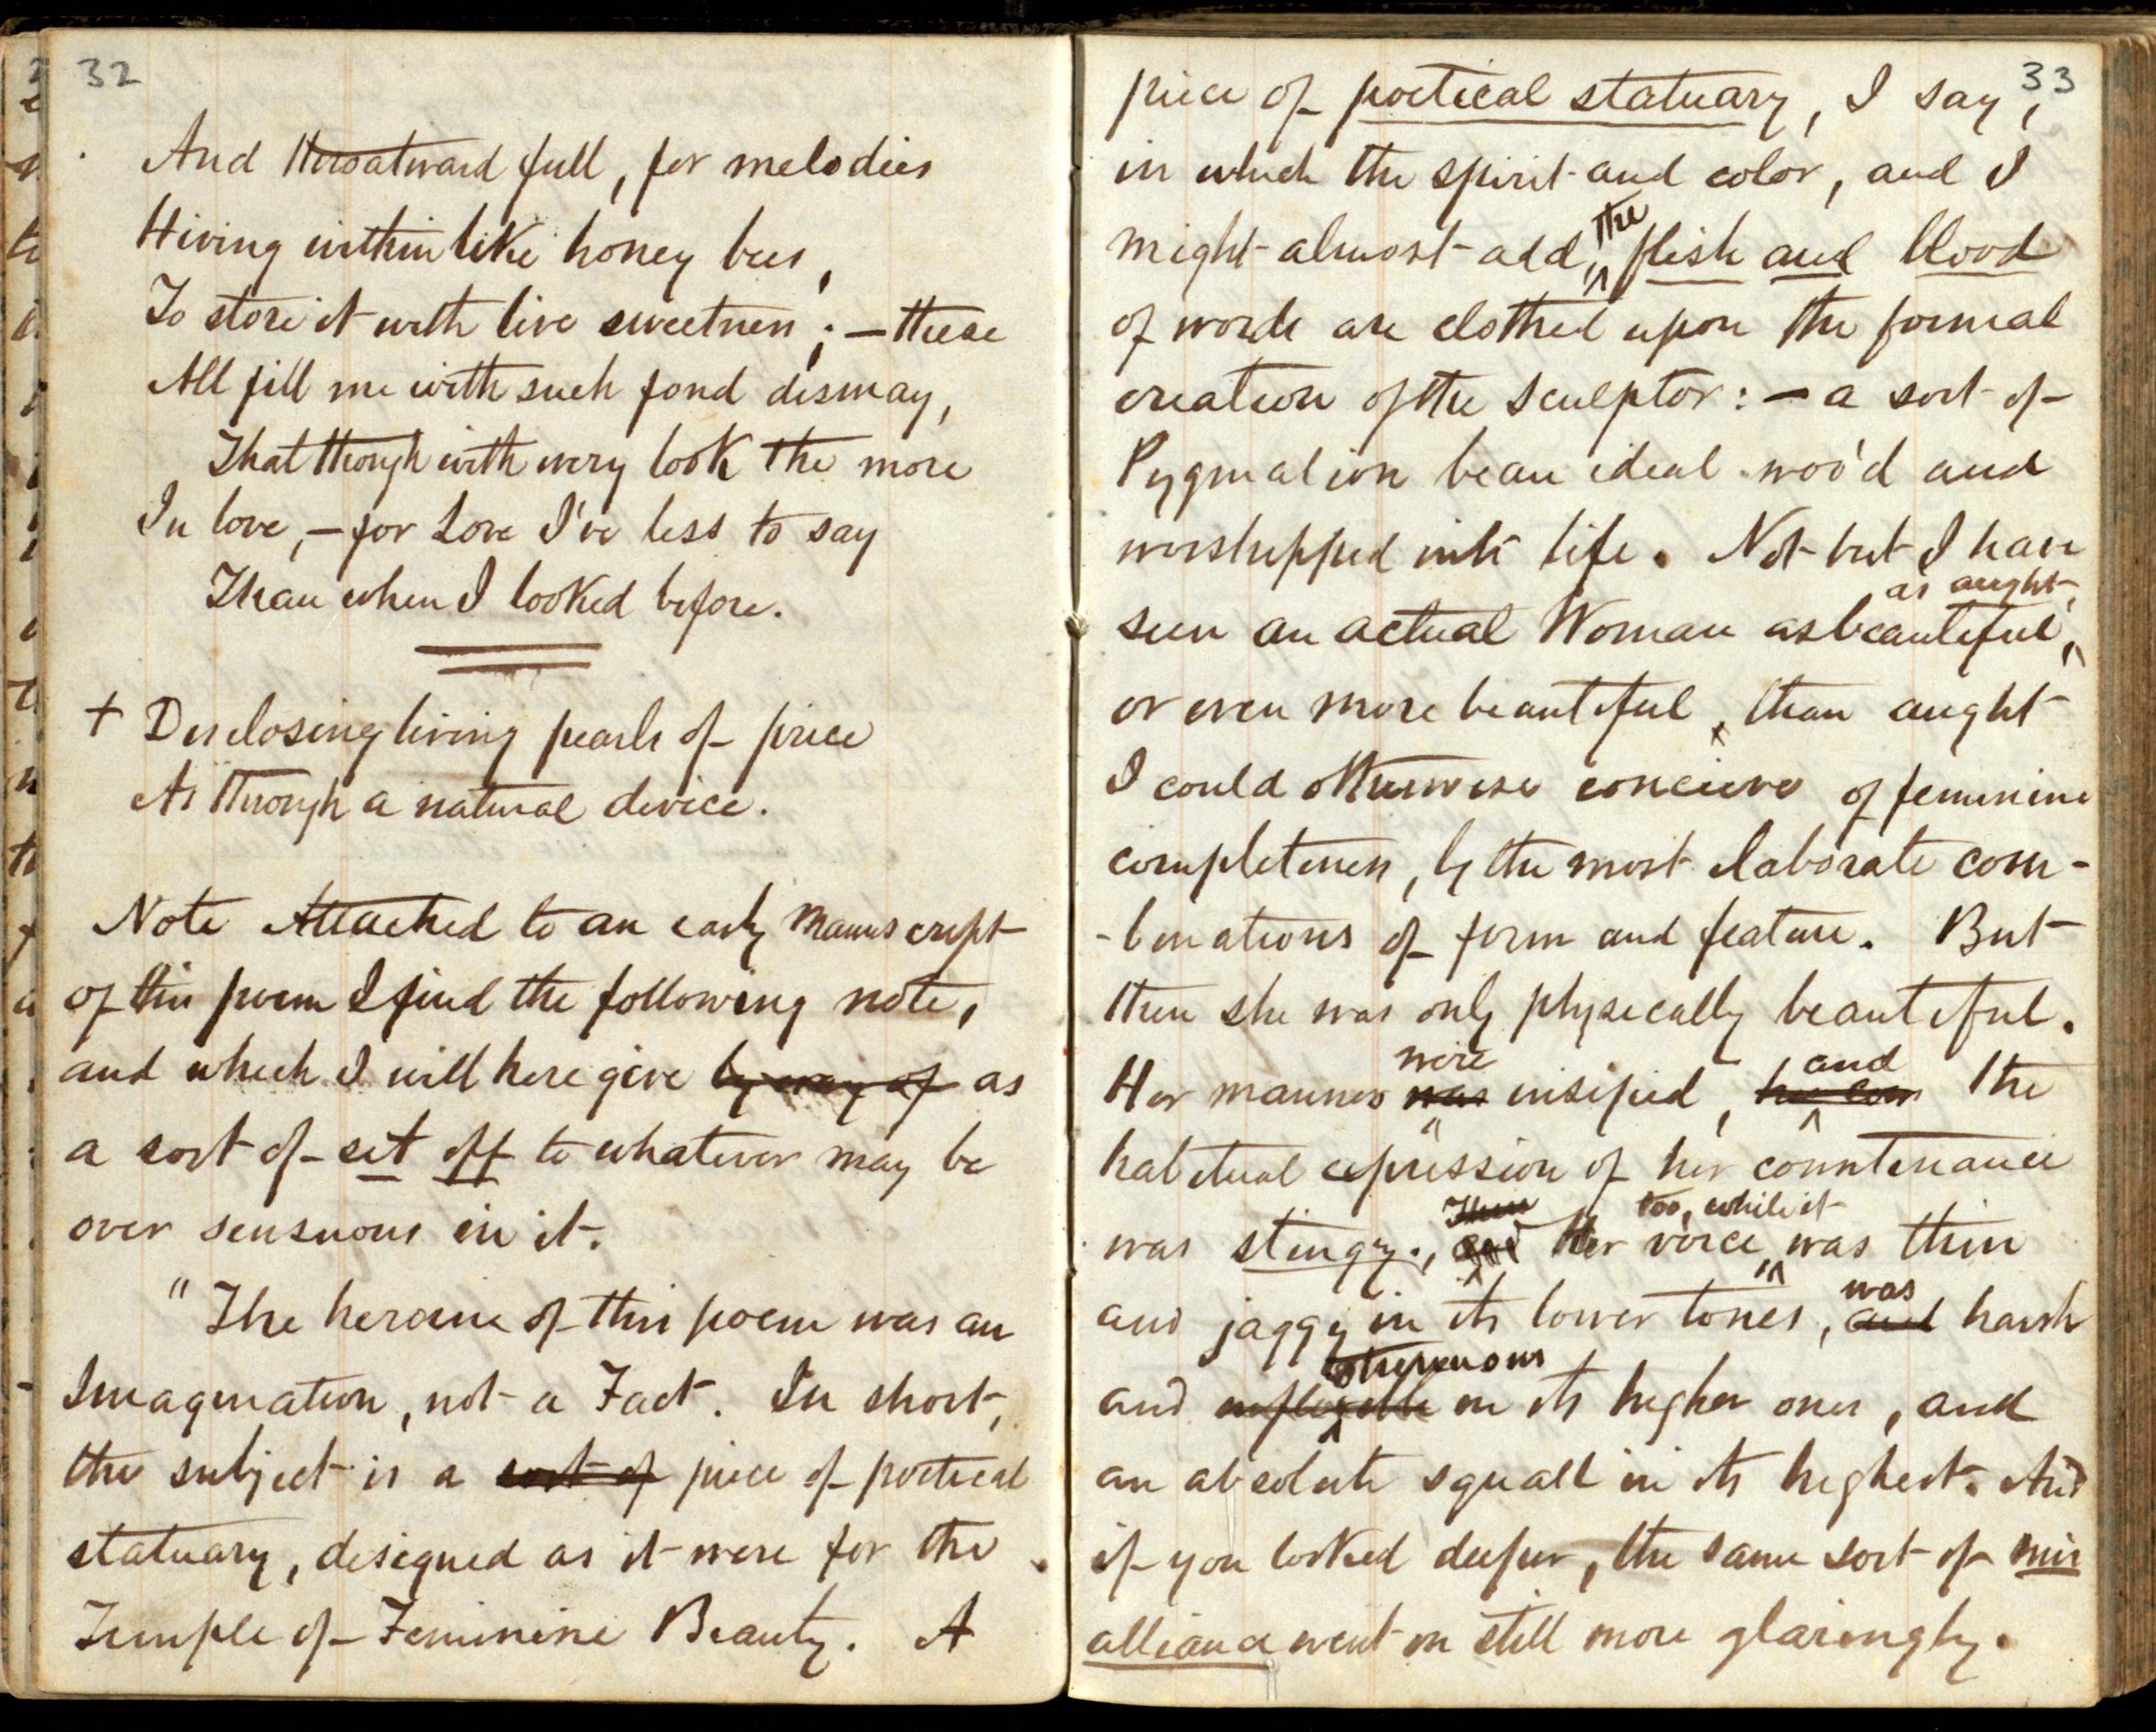 32
And throatward full, for melodies
Hiving within like honey bees,
To store it with live sweetness; — these
All fill me with such fond dismay,
That though with every look the more
In love, — for Love I've less to say
Than when I looked before.
+ Disclosing living pearls of price
As through a natural device.
Note Attached to an early manuscript
of this poem I find the following note,
and which I will here give by way of as
a sort of set off to whatever may be
over sensuous in it.
"The heroine of this poem was an
Imagination, not a Fact. In short,
the subject is a sort of piece of poetical
statuary, designed as it were for the
Temple of Feminine Beauty. A
33
piece of poetical statuary, I say,
in which the spirit and color, and I
might almost add, the flesh and blood
of words are clothed upon the formal
creation of the sculptor: — a sort of
Pygmalion beau ideal woo'd and
worshipped into life. Not but I have
seen an actual Woman as beautiful as aught,
or even more beautiful, than aught
I could otherwise concieve of feminine
completeness, by the most elaborate com-
-binations of form and feature. But
then she was only physically beautiful.
Her manners was were insipid, and the
habitual expression of her countenance
was stingy., Then and Her voice too, while it was thin
and jaggy in its lower tones, and was harsh
and in its higher ones, and
an absolute squall in its highest. And
if you looked deeper, the same sort of mis
alliance went on still more glaringly.